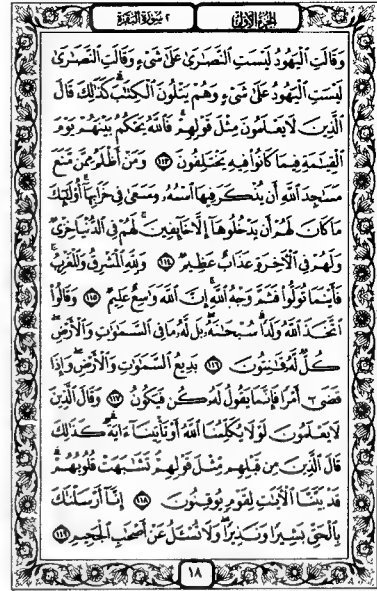 الجزء الأول ٢ سورة البقرة
وَقَالَتِ ٱلْيَهُودُ لَيْسَتِ ٱلنَّصَٰرَىٰ عَلَىٰ شَىْءٍ وَقَالَتِ ٱلنَّصَٰرَىٰ
لَيْسَتِ ٱلْيَهُودُ عَلَىٰ شَىْءٍ وَهُمْ يَتْلُونَ ٱلْكِتَٰبَ ۗ كَذَٰلِكَ قَالَ
ٱلَّذِينَ لَا يَعْلَمُونَ مِثْلَ قَوْلِهِمْ ۚ فَٱللَّهُ يَحْكُمُ بَيْنَهُمْ يَوْمَ
ٱلْقِيَٰمَةِ فِيمَا كَانُوا۟ فِيهِ يَخْتَلِفُونَ ١١٣ وَمَنْ أَظْلَمُ مِمَّن مَّنَعَ
مَسَٰجِدَ ٱللَّهِ أَن يُذْكَرَ فِيهَا ٱسْمُهُۥ وَسَعَىٰ فِى خَرَابِهَآ ۚ أُو۟لَٰٓئِكَ
مَا كَانَ لَهُمْ أَن يَدْخُلُوهَآ إِلَّا خَآئِفِينَ ۚ لَهُمْ فِى ٱلدُّنْيَا خِزْىٌ
وَلَهُمْ فِى ٱلْءَاخِرَةِ عَذَابٌ عَظِيمٌ ١١٤ وَلِلَّهِ ٱلْمَشْرِقُ وَٱلْمَغْرِبُ ۚ
فَأَيْنَمَا تُوَلُّوا۟ فَثَمَّ وَجْهُ ٱللَّهِ ۚ إِنَّ ٱللَّهَ وَٰسِعٌ عَلِيمٌ ١١٥ وَقَالُوا۟
ٱتَّخَذَ ٱللَّهُ وَلَدًا ۗ سُبْحَٰنَهُۥ ۖ بَل لَّهُۥ مَا فِى ٱلسَّمَٰوَٰتِ وَٱلْأَرْضِ ۖ
كُلٌّ لَّهُۥ قَٰنِتُونَ ١١٦ بَدِيعُ ٱلسَّمَٰوَٰتِ وَٱلْأَرْضِ ۖ وَإِذَا
قَضَىٰٓ أَمْرًا فَإِنَّمَا يَقُولُ لَهُۥ كُن فَيَكُونُ ١١٧ وَقَالَ ٱلَّذِينَ
لَا يَعْلَمُونَ لَوْلَا يُكَلِّمُنَا ٱللَّهُ أَوْ تَأْتِينَآ ءَايَةٌ ۗ كَذَٰلِكَ
قَالَ ٱلَّذِينَ مِن قَبْلِهِم مِّثْلَ قَوْلِهِمْ ۘ تَشَٰبَهَتْ قُلُوبُهُمْ ۗ
قَدْ بَيَّنَّا ٱلْءَايَٰتِ لِقَوْمٍ يُوقِنُونَ ١١٨ إِنَّآ أَرْسَلْنَٰكَ
بِٱلْحَقِّ بَشِيرًا وَنَذِيرًا ۖ وَلَا تُسْـَٔلُ عَنْ أَصْحَٰبِ ٱلْجَحِيمِ ١١٩
١٨